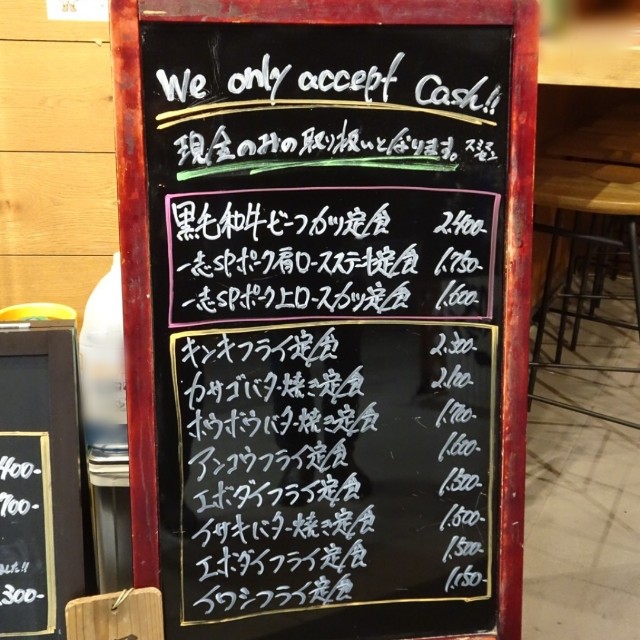 We only accept Cash!!
現金のみの取り扱いとなります。スミマセン
黒毛和牛ビーフカツ定食 2.400-
一志SPポーク肩ロースステーキ定食 1.750-
一志SPポーク上ロースカツ定食 1.600-
キンキフライ定食 2.300-
カサゴバター焼き定食 2.100-
ホウボウバター焼き定食 1.700-
アンコウフライ定食 1.600-
エボダイフライ定食 1.500-
イサキバター焼き定食 1.500-
エボダイフライ定食 1.500-
イワシフライ定食 1.150-
400-
700-
ました!!
.300-